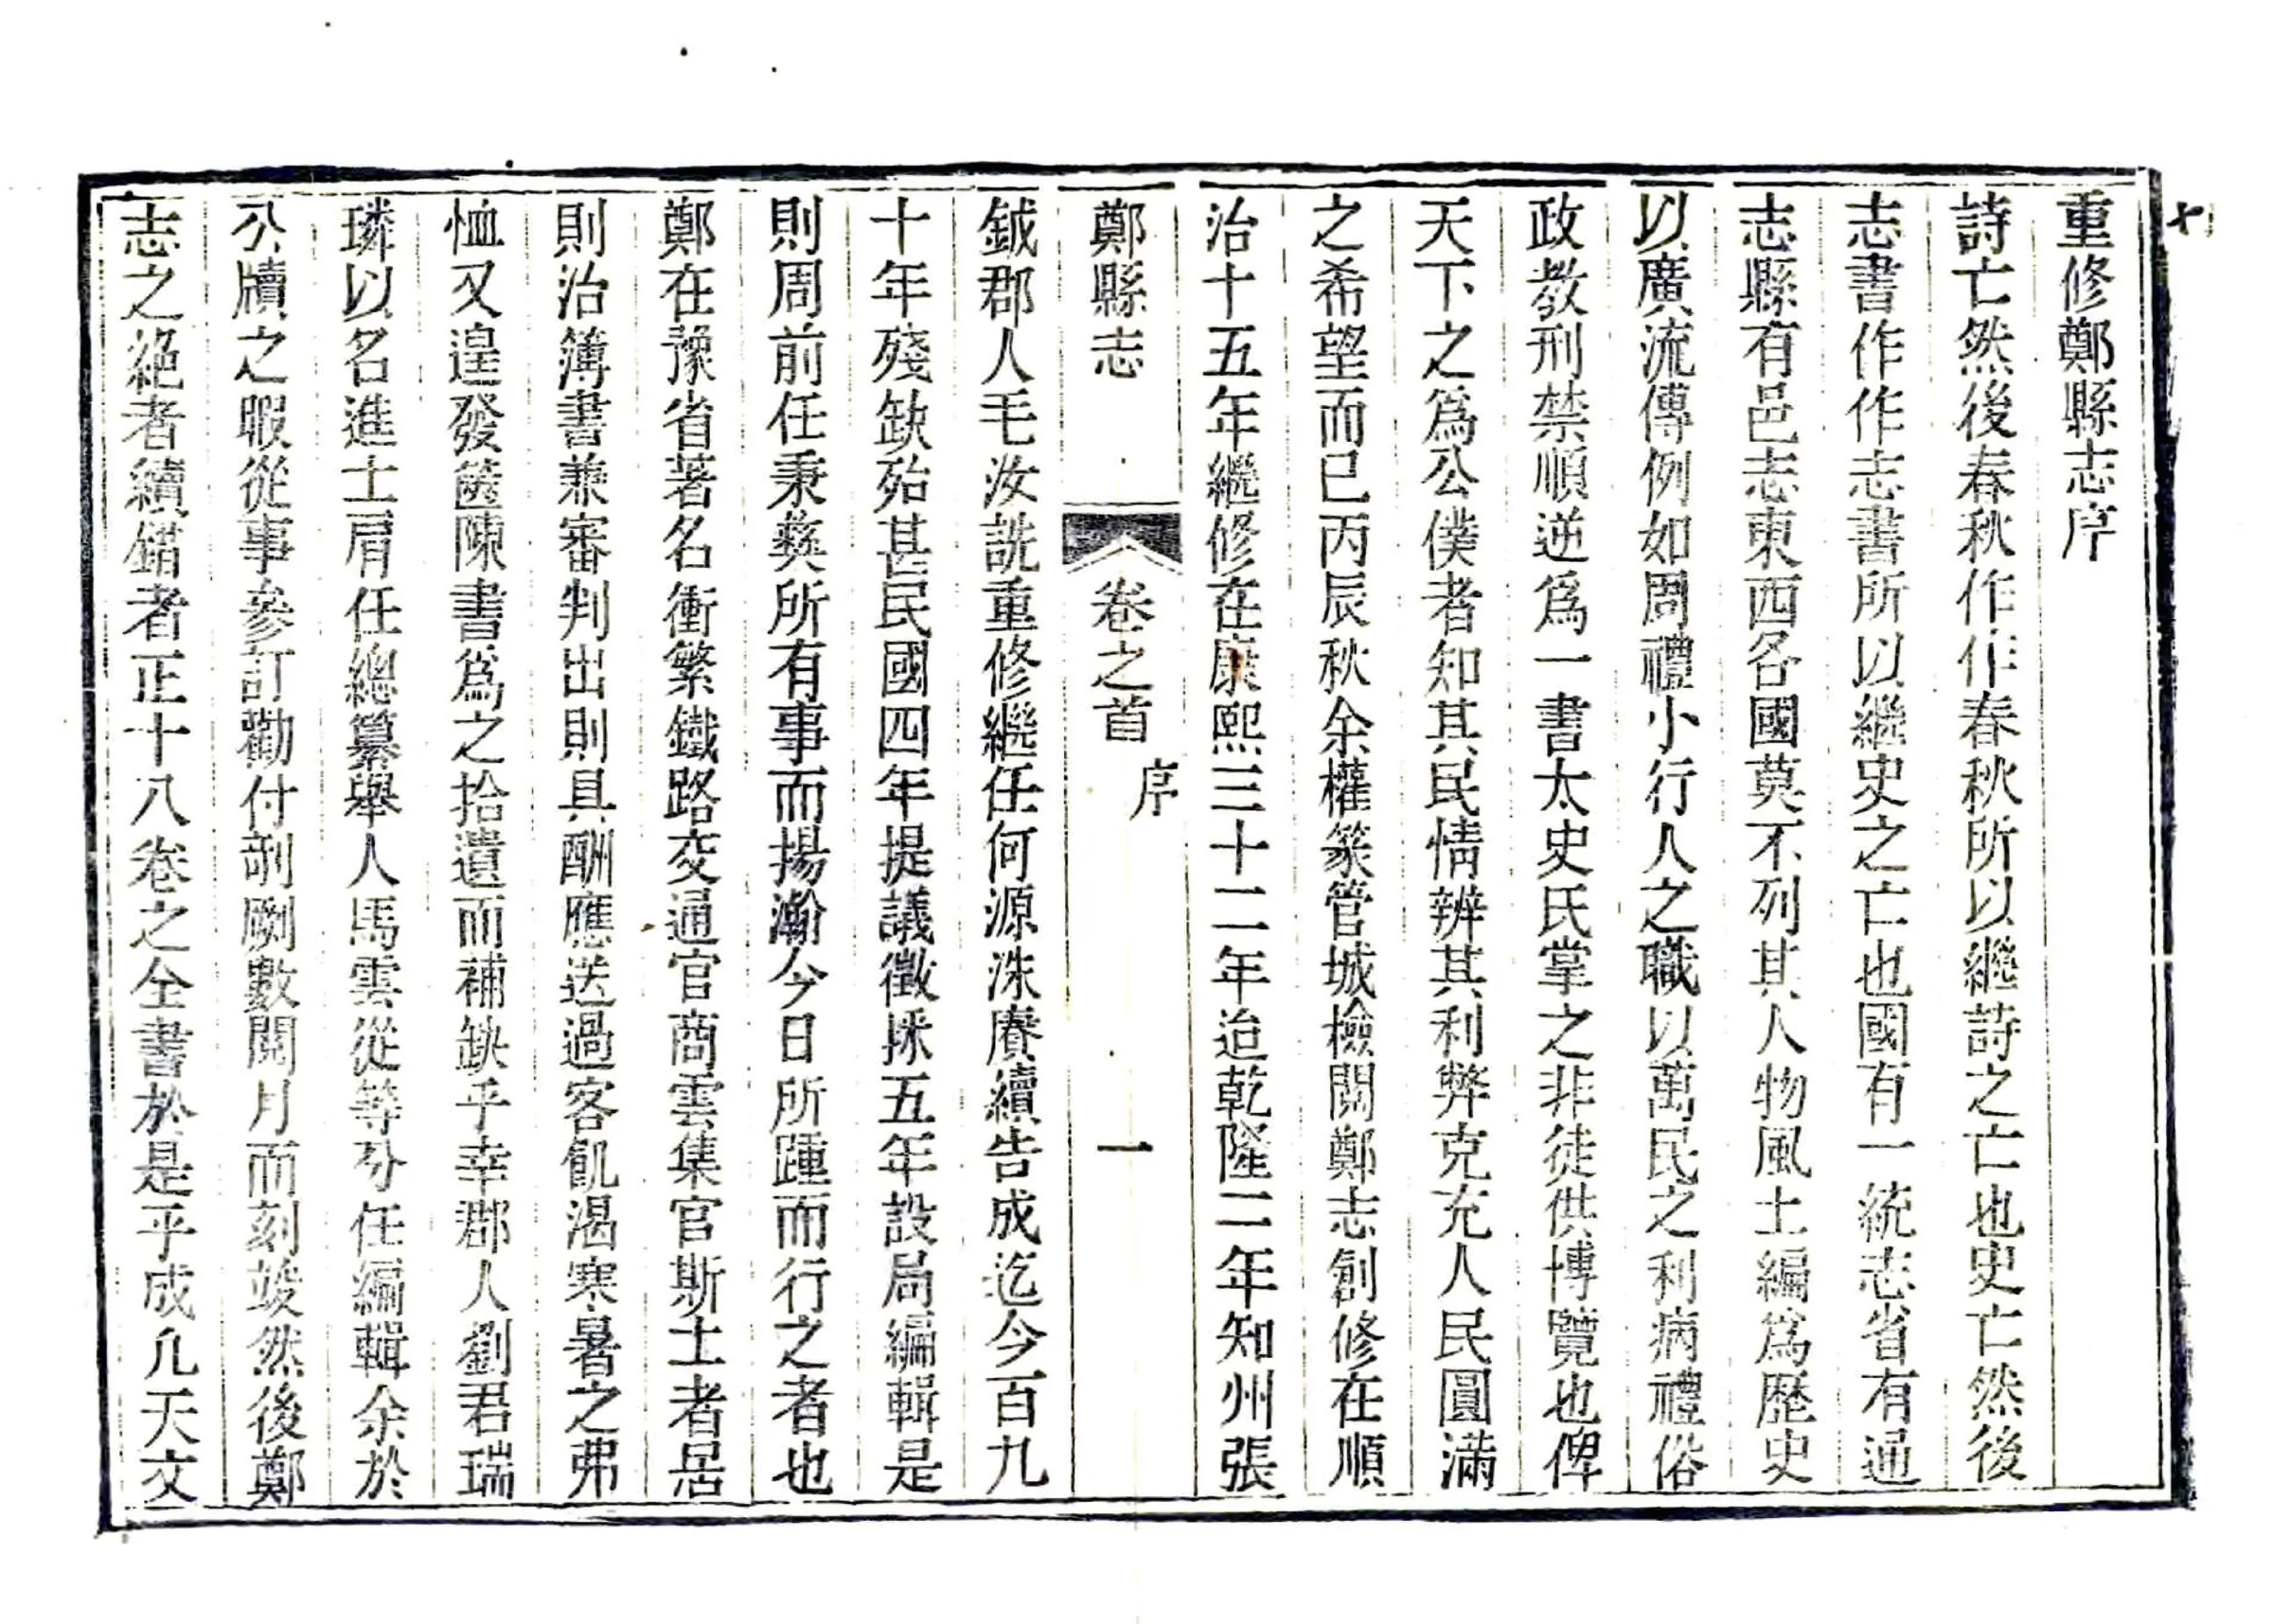 重修鄭縣志序
詩亡然後春秋作作春秋所以繼詩之亡也史亡然後
志書作作志書所以繼史之亡也國有一統志省有通
志縣有邑志東西各國莫不列其人物風土編爲歷史
以廣流傳例如周禮小行人之職以萬民之利病禮俗
政教刑禁順逆爲一書太史氏掌之非徒供博覽也俾
天下之爲公僕者知其民情辨其利弊克充人民圓滿
之希望而已丙辰秋余權篆管城檢閱鄭志創修在順
治十五年繼修在康熙三十二年迨乾隆二年知州張
鄭縣志
卷之首
序
一
鉞郡人毛汝詵重修繼任何源洙賡續告成迄今百九
十年殘缺殆甚民國四年提議徵採五年設局編輯是
則周前任秉彝所有事而揚瀚今日所踵而行之者也
鄭在豫省著名衝繁鐵路交通官商雲集官斯土者居
則治簿書兼審判出則具酬應送過客飢渴寒暑之弗
恤又遑發篋陳書爲之拾遺而補缺乎幸郡人劉君瑞
璘以名進士肩任總纂舉人馬雲從等分任編輯余於
公牘之暇從事參訂勸付剞劂數閱月而刻竣然後鄭
志之絕者續錯者正十八卷之全書於是乎成凡天文